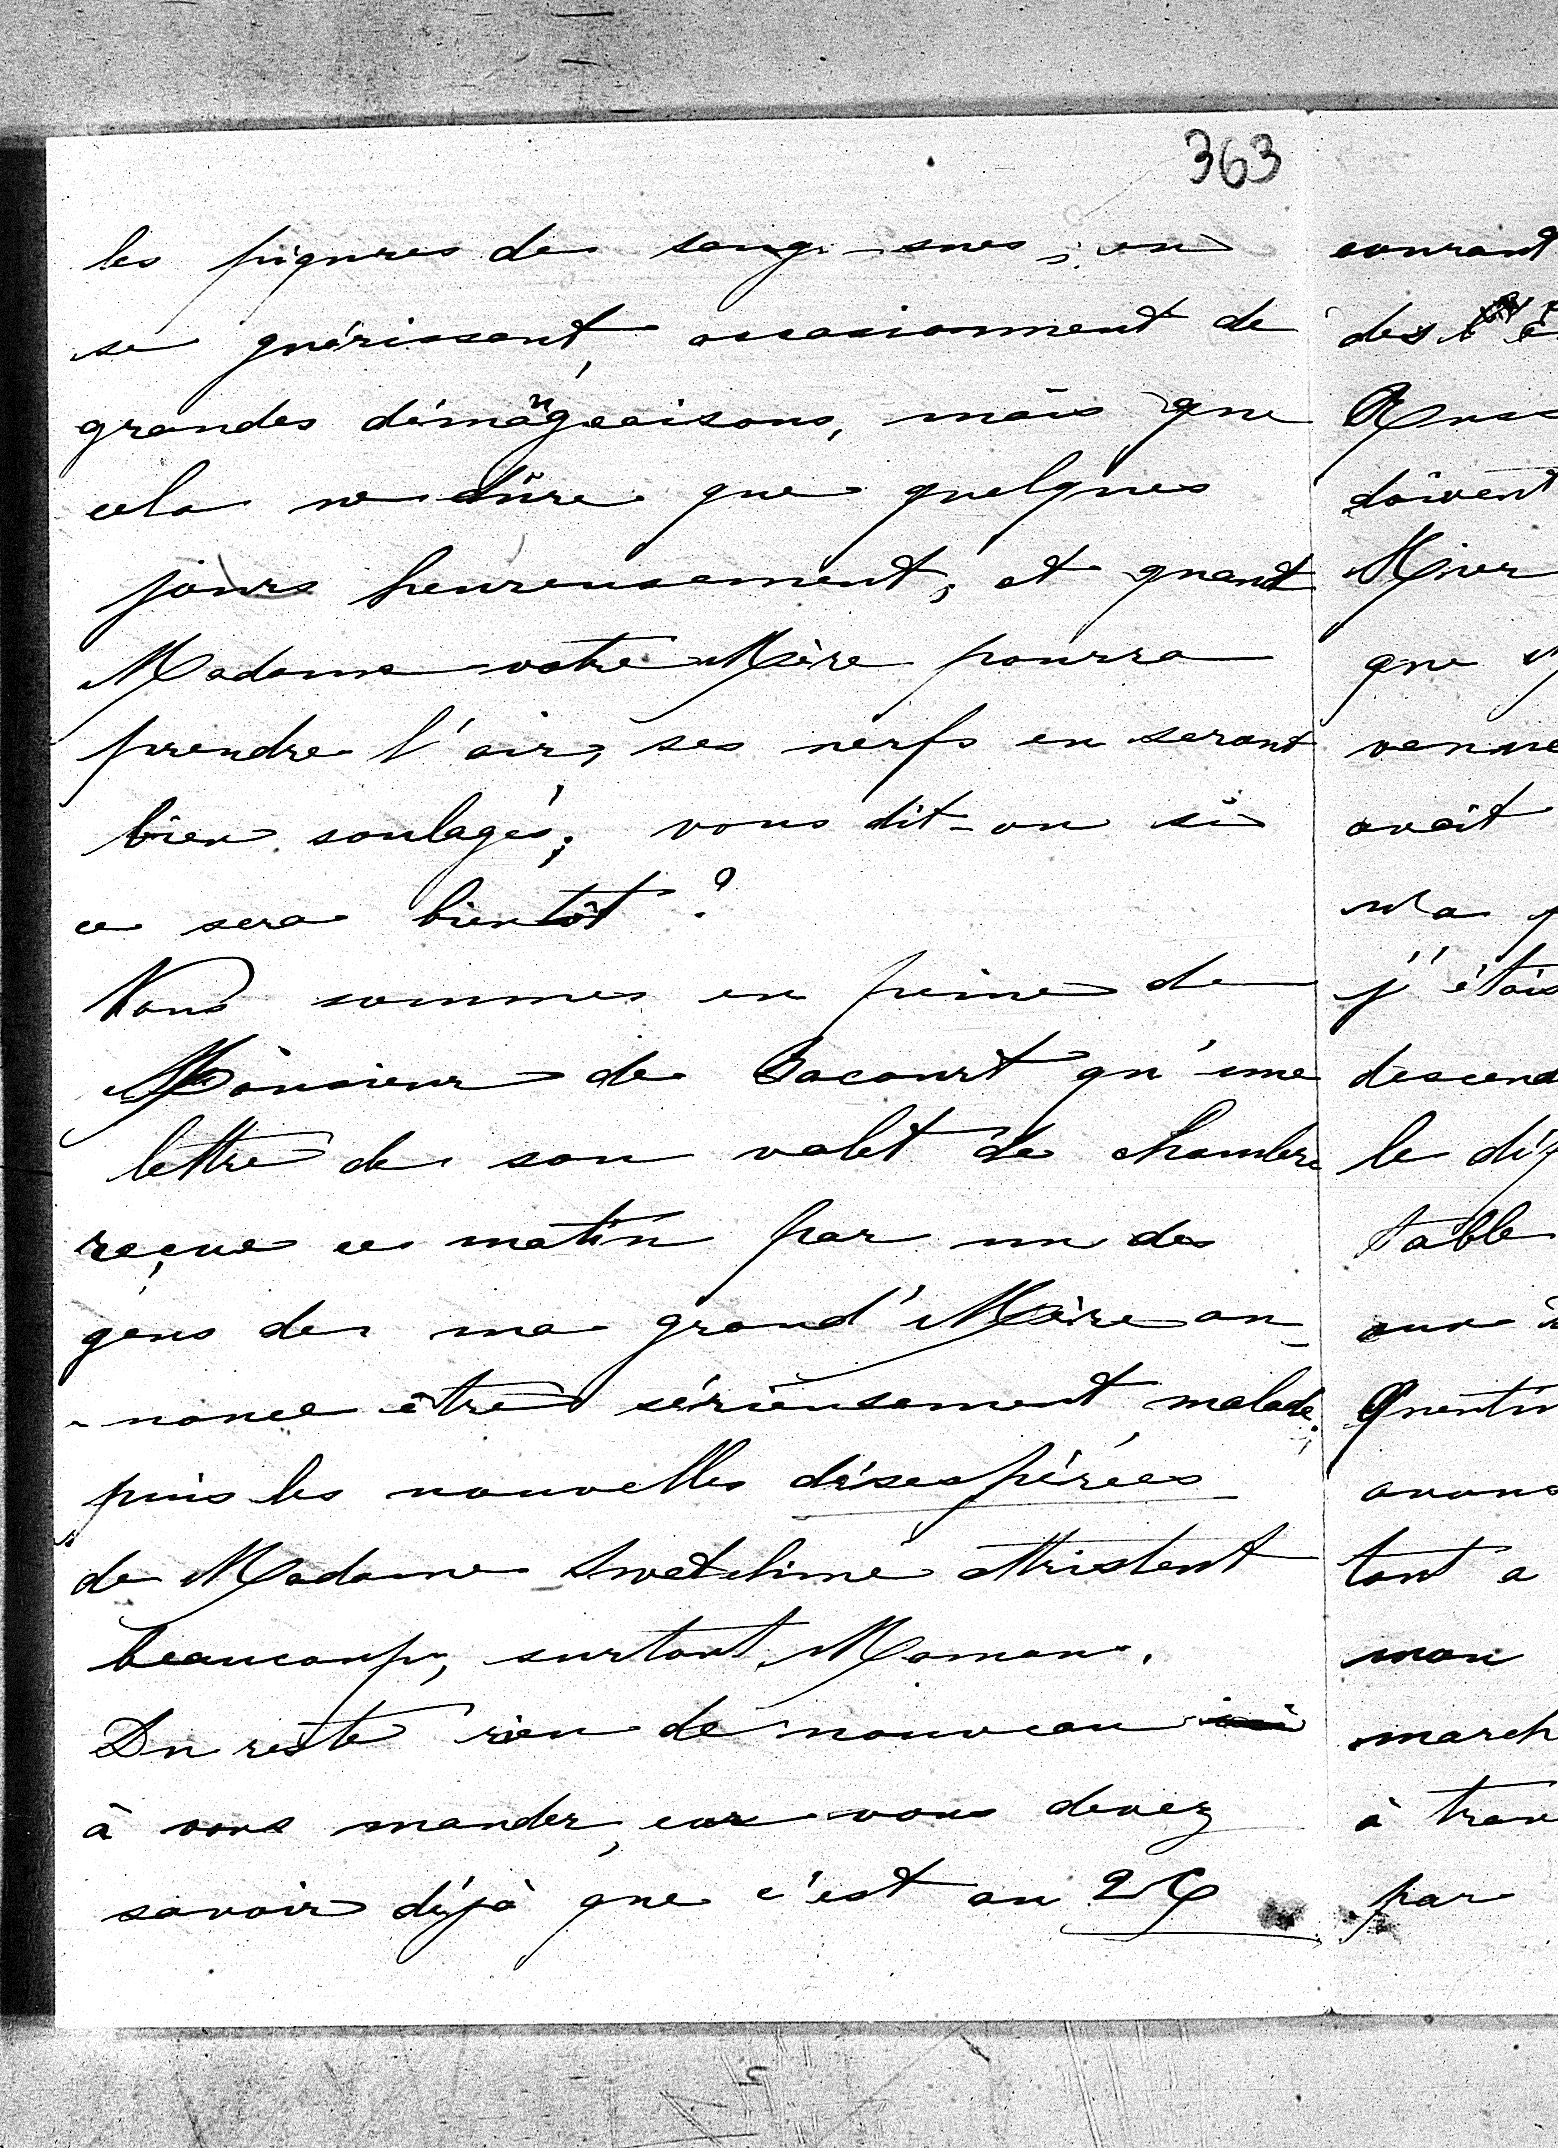 363
les piqures de sangsues, en
se guérissant, occasionnent de
grandes démangeaisons, mais que
cela ne dure que quelques
jours heureusement, et quand
Madame votre Mère pourra
prendre l'air, ses nerfs en seront
bien soulagés; vous dit-on si
ce sera bientôt?
Nous sommes en peine de
Monsieur de Bacourt qu'une
lettre de son valet de chambre
reçue ce matin par un des
gens de ma grand'Mère an-
-nonce être sérieusement malade;
puis les nouvelles désespérées
de Madame Swetchine attristent
beaucoup, surtout Maman.
Du reste rien de nouveau ici
à vous mander, car vous devez
savoir déjà que c'est au 26
courant
des
doivent
que
venue
avait
n'a
j'étais
descend
le
table
Quentin
avons
tant a
mon
march
à trav
par